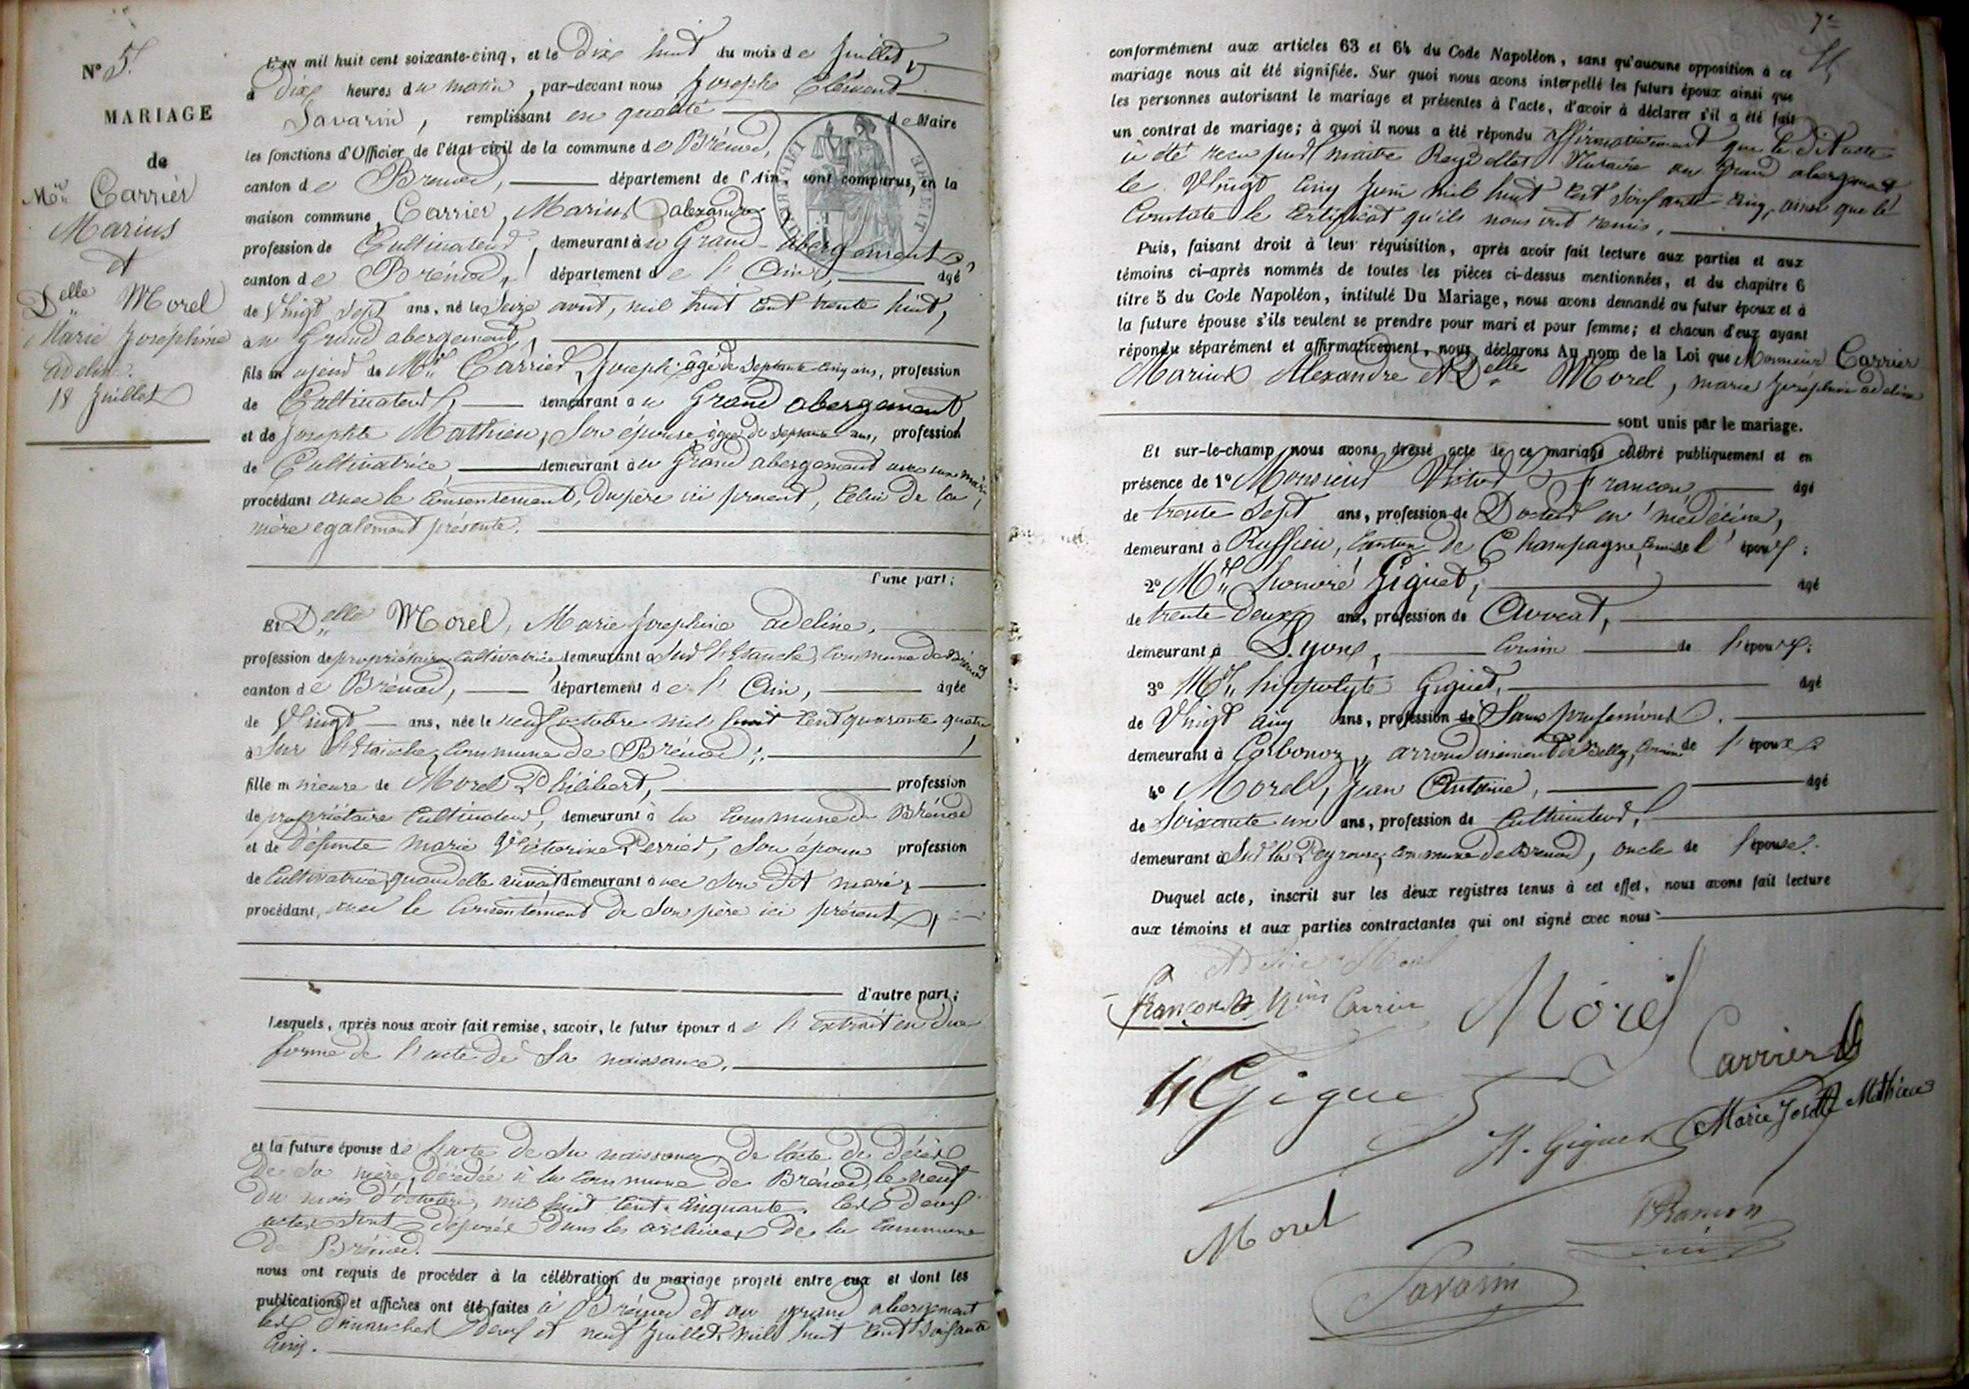 N° 5.
MARIAGE
de
Mr Carrier
Marius
et
Delle Morel
Marie Joséphine
adeline.
18 Juillet
L'an mil huit cent soixante-cinq, et le Dix huit du mois de Juillet,
à Dix heures du matin, par-devant nous Joseph Clément
Savarin, remplissant en qualité de Maire
les fonctions d'Officier de l'état civil de la commune de Brénod,
canton de Brénod, département de l'Ain, sont comparus, en la
maison commune, Carrier, Marius alexandre
profession de Cultivateur, demeurant au Grand-abergement,
canton de Brénod, département de l'Ain, âgé
de Vingt Sept ans, né le Seize août, mil huit cent trente huit,
au Grand abergement,
fils majeur de Mr Carrier, Joseph âgé de Septante cinq ans, profession
de Cultivateur, demeurant au Grand abergement,
et de Josephte Mathieu, Son épouse, âgée de Septante ans, profession
de Cultivatrice, demeurant au Grand abergement avec son mari,
procédant avec le Consentement, du père ici présent, Celui de la
mère egalement présente.
d'une part;
Et Delle Morel, Marie Josephine adeline,
profession de propriétaire Cultivatrice, demeurant à Sur l'Etanche, Commune de Brénod
canton de Brénod, département de l'Ain, âgée
de Vingt ans, née le neuf octobre mil huit Cent quarante quatre
à Sur l'Etanche, Commune de Brénod;
fille mineure de Morel Philibert, profession
de propriétaire Cultivateur, demeurant à la Commune de Brénod
et de défunte Marie Victorine Perrier, Son épouse profession
de Cultivatrice, quand elle vivait demeurant avec Son dit mari,
procédant, avec le Consentement de Son père ici présent,
d'autre part;
Lesquels, après nous avoir fait remise, savoir, le futur époux de l'extrait en due
forme de l'acte de Sa naissance,
et la future épouse de l'acte de Sa naissance, de l'acte de décès
de Sa mère, décédée à la Commune de Brénod, le neuf
du mois d'octobre, mil huit Cent Cinquante. Ces deux
actes sont déposés dans les archives de la Commune
de Brénod.
nous ont requis de procéder à la célébration du mariage projeté entre eux et dont les
publications et affiches ont été faites à Brénod et au grand abergement
les Dimanches deux et neuf Juillet mil huit Cent soixante
Cinq.
7e
conformément aux articles 63 et 64 du Code Napoléon, sans qu'aucune opposition à ce
mariage nous ait été signifiée. Sur quoi nous avons interpellé les futurs époux ainsi que
les personnes autorisant le mariage et présentes à l'acte, d'avoir à déclarer s'il a été fait
un contrat de mariage; à quoi il nous a été répondu affirmativement que le Dit acte
à été reçu par maître Notaire au Grand abergement
le Vingt Cinq Juin mil huit Cent Soixante Cinq, ainsi que le
Constate le Certificat qu'ils nous ont remis,
Puis, faisant droit à leur réquisition, après avoir fait lecture aux parties et aux
témoins ci-après nommés de toutes les pièces ci-dessus mentionnées, et du chapitre 6
titre 5 du Code Napoléon, intitulé Du Mariage, nous avons demandé au futur époux et à
la future épouse s'ils veulent se prendre pour mari et pour femme; et chacun d'eux ayant
répondu séparément et affirmativement, nous déclarons Au nom de la Loi que Monsieur Carrier
Marius Alexandre et Delle Morel, marie Joséphine adeline
sont unis par le mariage.
Et sur-le-champ nous avons dressé acte de ce mariage célébré publiquement et en
présence de 1° Monsieur Victor Françon, âgé
de trente Sept ans, profession de Docteur en médecine,
demeurant à Ruffieu, Canton de Champagne, ami de l'époux;
2° Mr honoré Giguet, âgé
de trente deux ans, profession de Avocat,
demeurant à Lyon, Cousin de l'époux;
3° Mr hippolyte Giguet, âgé
de Vingt cinq ans, profession de Sans profession.
demeurant à Corbonoz, arrondissement de Belley, Cousin de l'époux;
4° Morel, Jean Antoine, âgé
de Soixante un ans, profession de Cultivateur,
demeurant à Sur la Peyrouse, commune de Brénod, oncle de l'épouse.
Duquel acte, inscrit sur les deux registres tenus à cet effet, nous avons fait lecture
aux témoins et aux parties contractantes qui ont signé avec nous
Adeline Morel
Françon Mius Carrier Morel
Carrier
H Giguet
H. Giguet Marie Josette Mathieu
Morel
Savarin